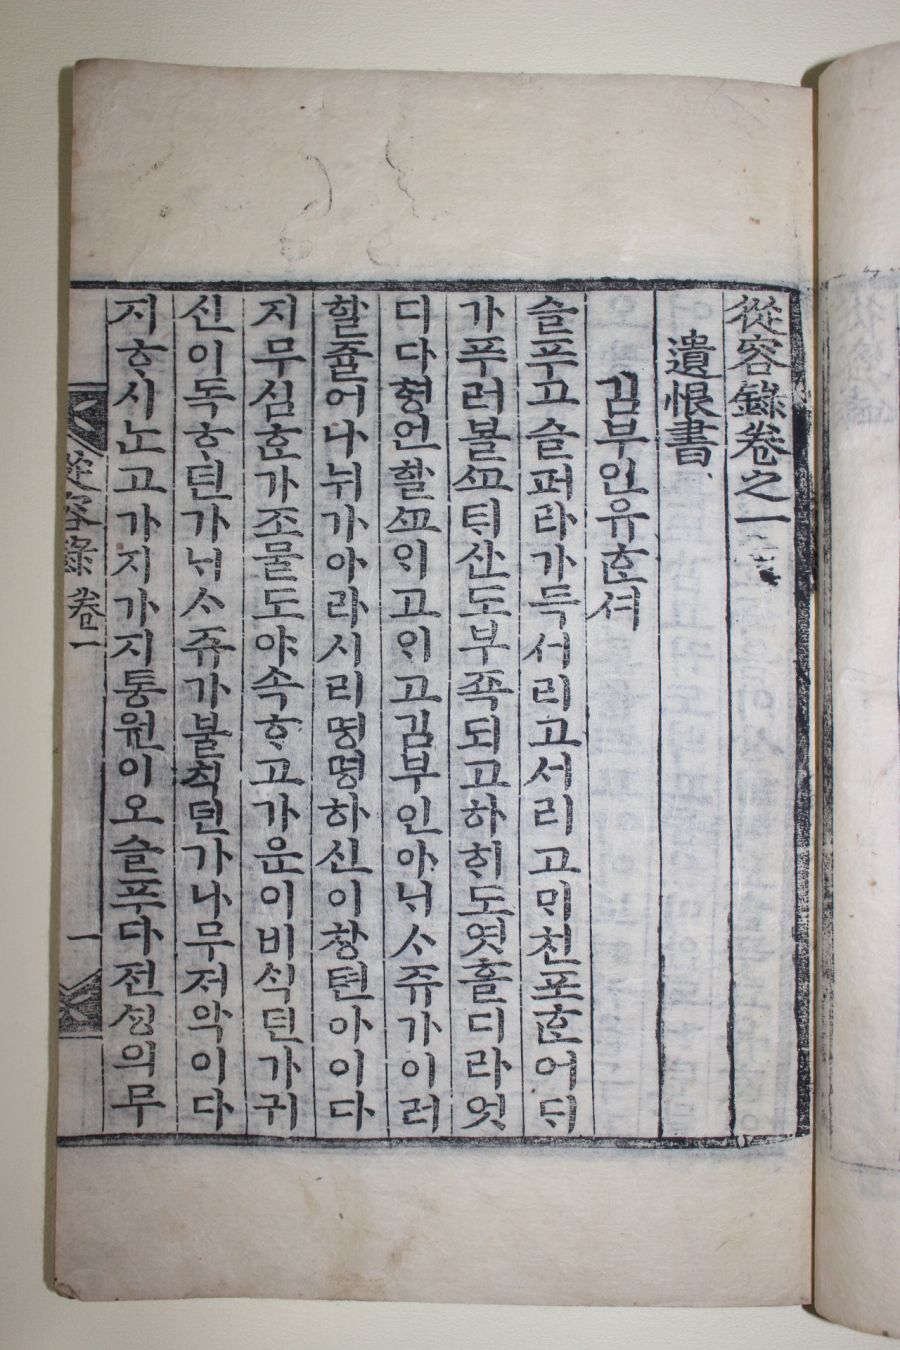 從容錄卷之一
遺恨書
김부인유ᄒᆞᆫ셔
슬푸고슬퍼라가득서리고서리고ᄆᆡ천포ᄒᆞᆫ어ᄃᆡ
가푸러볼ᄭᅩᄐᆡ산도부죡되고하ᄒᆡ도엿흘디라엇
디다형언할ᄭᅩᄋᆡ고ᄋᆡ고김부인아ᄂᆡᄉᆞ쥬가이러
할쥴어나뉘가아라시리명명하신이창텬아이다
지무심ᄒᆞᆫ가조물도야속ᄒᆞ고가운이비ᄉᆡᆨ턴가귀
신이독ᄒᆞ턴가ᄂᆡᄉᆞ쥬가불칙턴가나무져악이다
지ᄒᆞ시노고가지가지통원이오슬푸다전ᄉᆡᆼ의무
從容錄 卷一 一